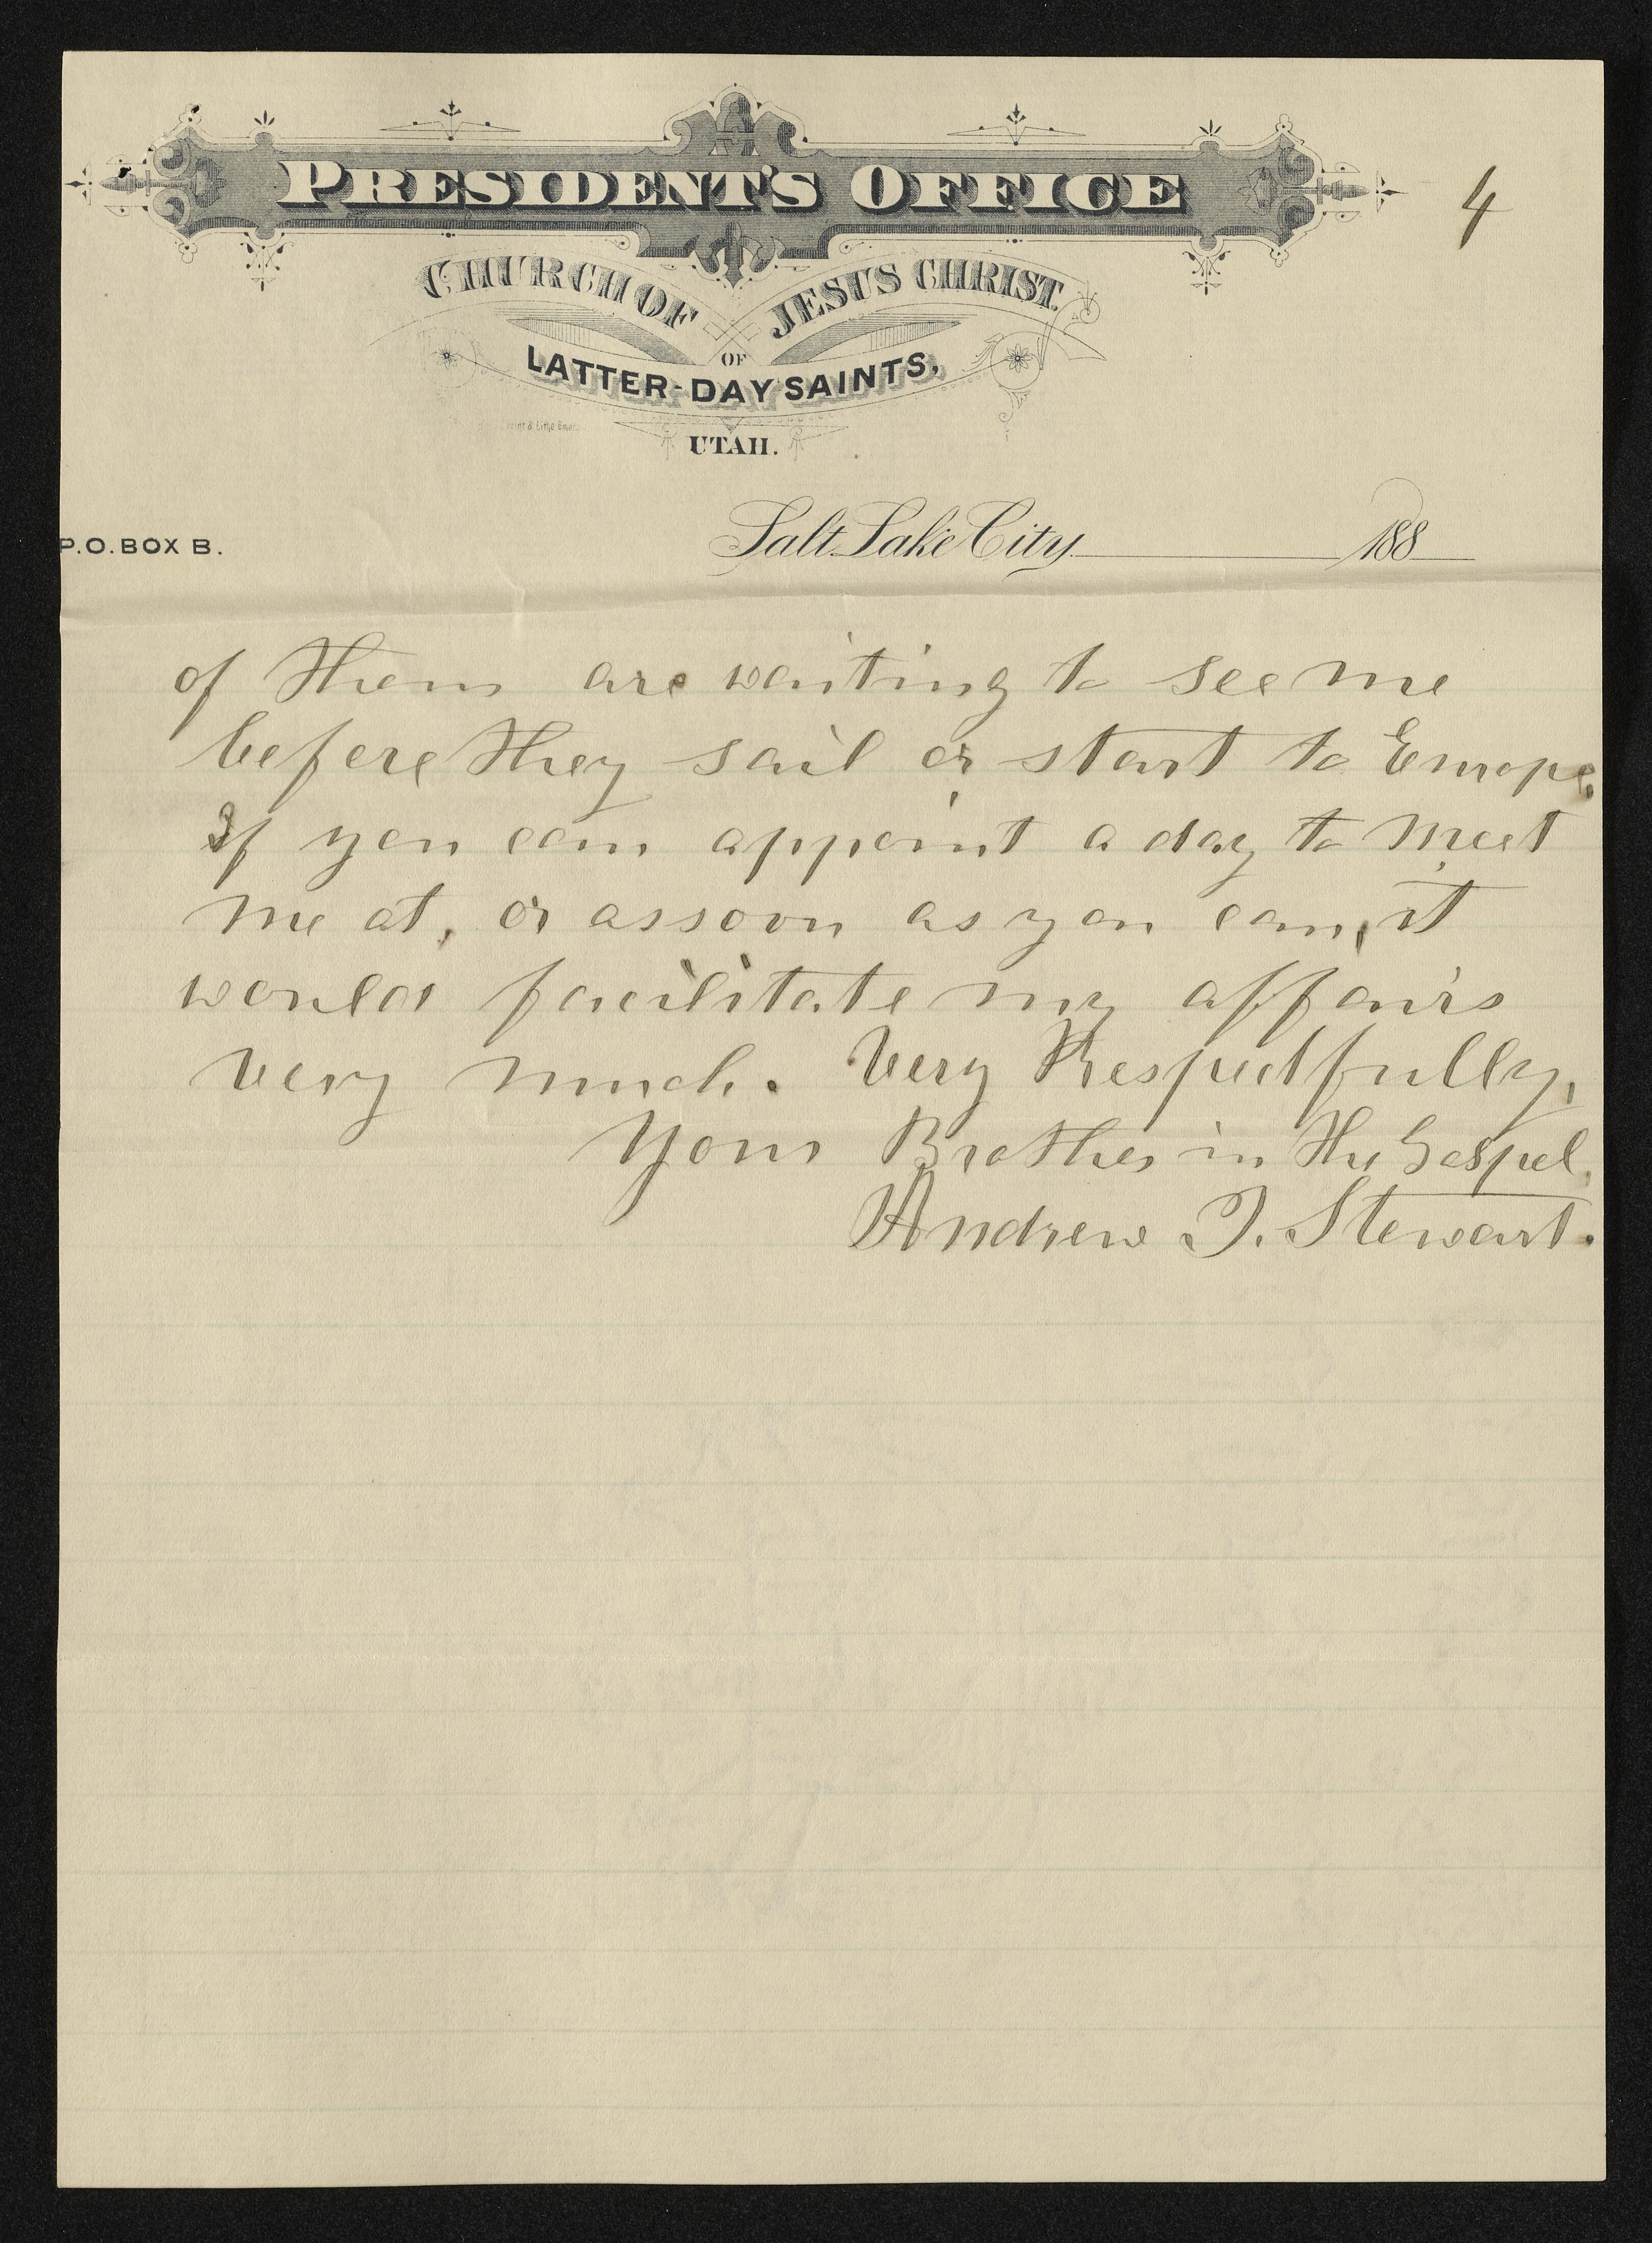 PRESIDENT'S OFFICE
4
CHURCH OF JESUS CHRIST
OF
LATTER-DAY SAINTS,
UTAH.
P.O. BOX B.
Salt Lake City 188
of them are waiting to see me
before they sail or start to Europe.
If you can appoint a day to meet
me at, or assoon as you can, it
would facilitate my affairs
very much. Very Respectfully,
Your Brother in the Gospel.
Andrew J. Stewart.